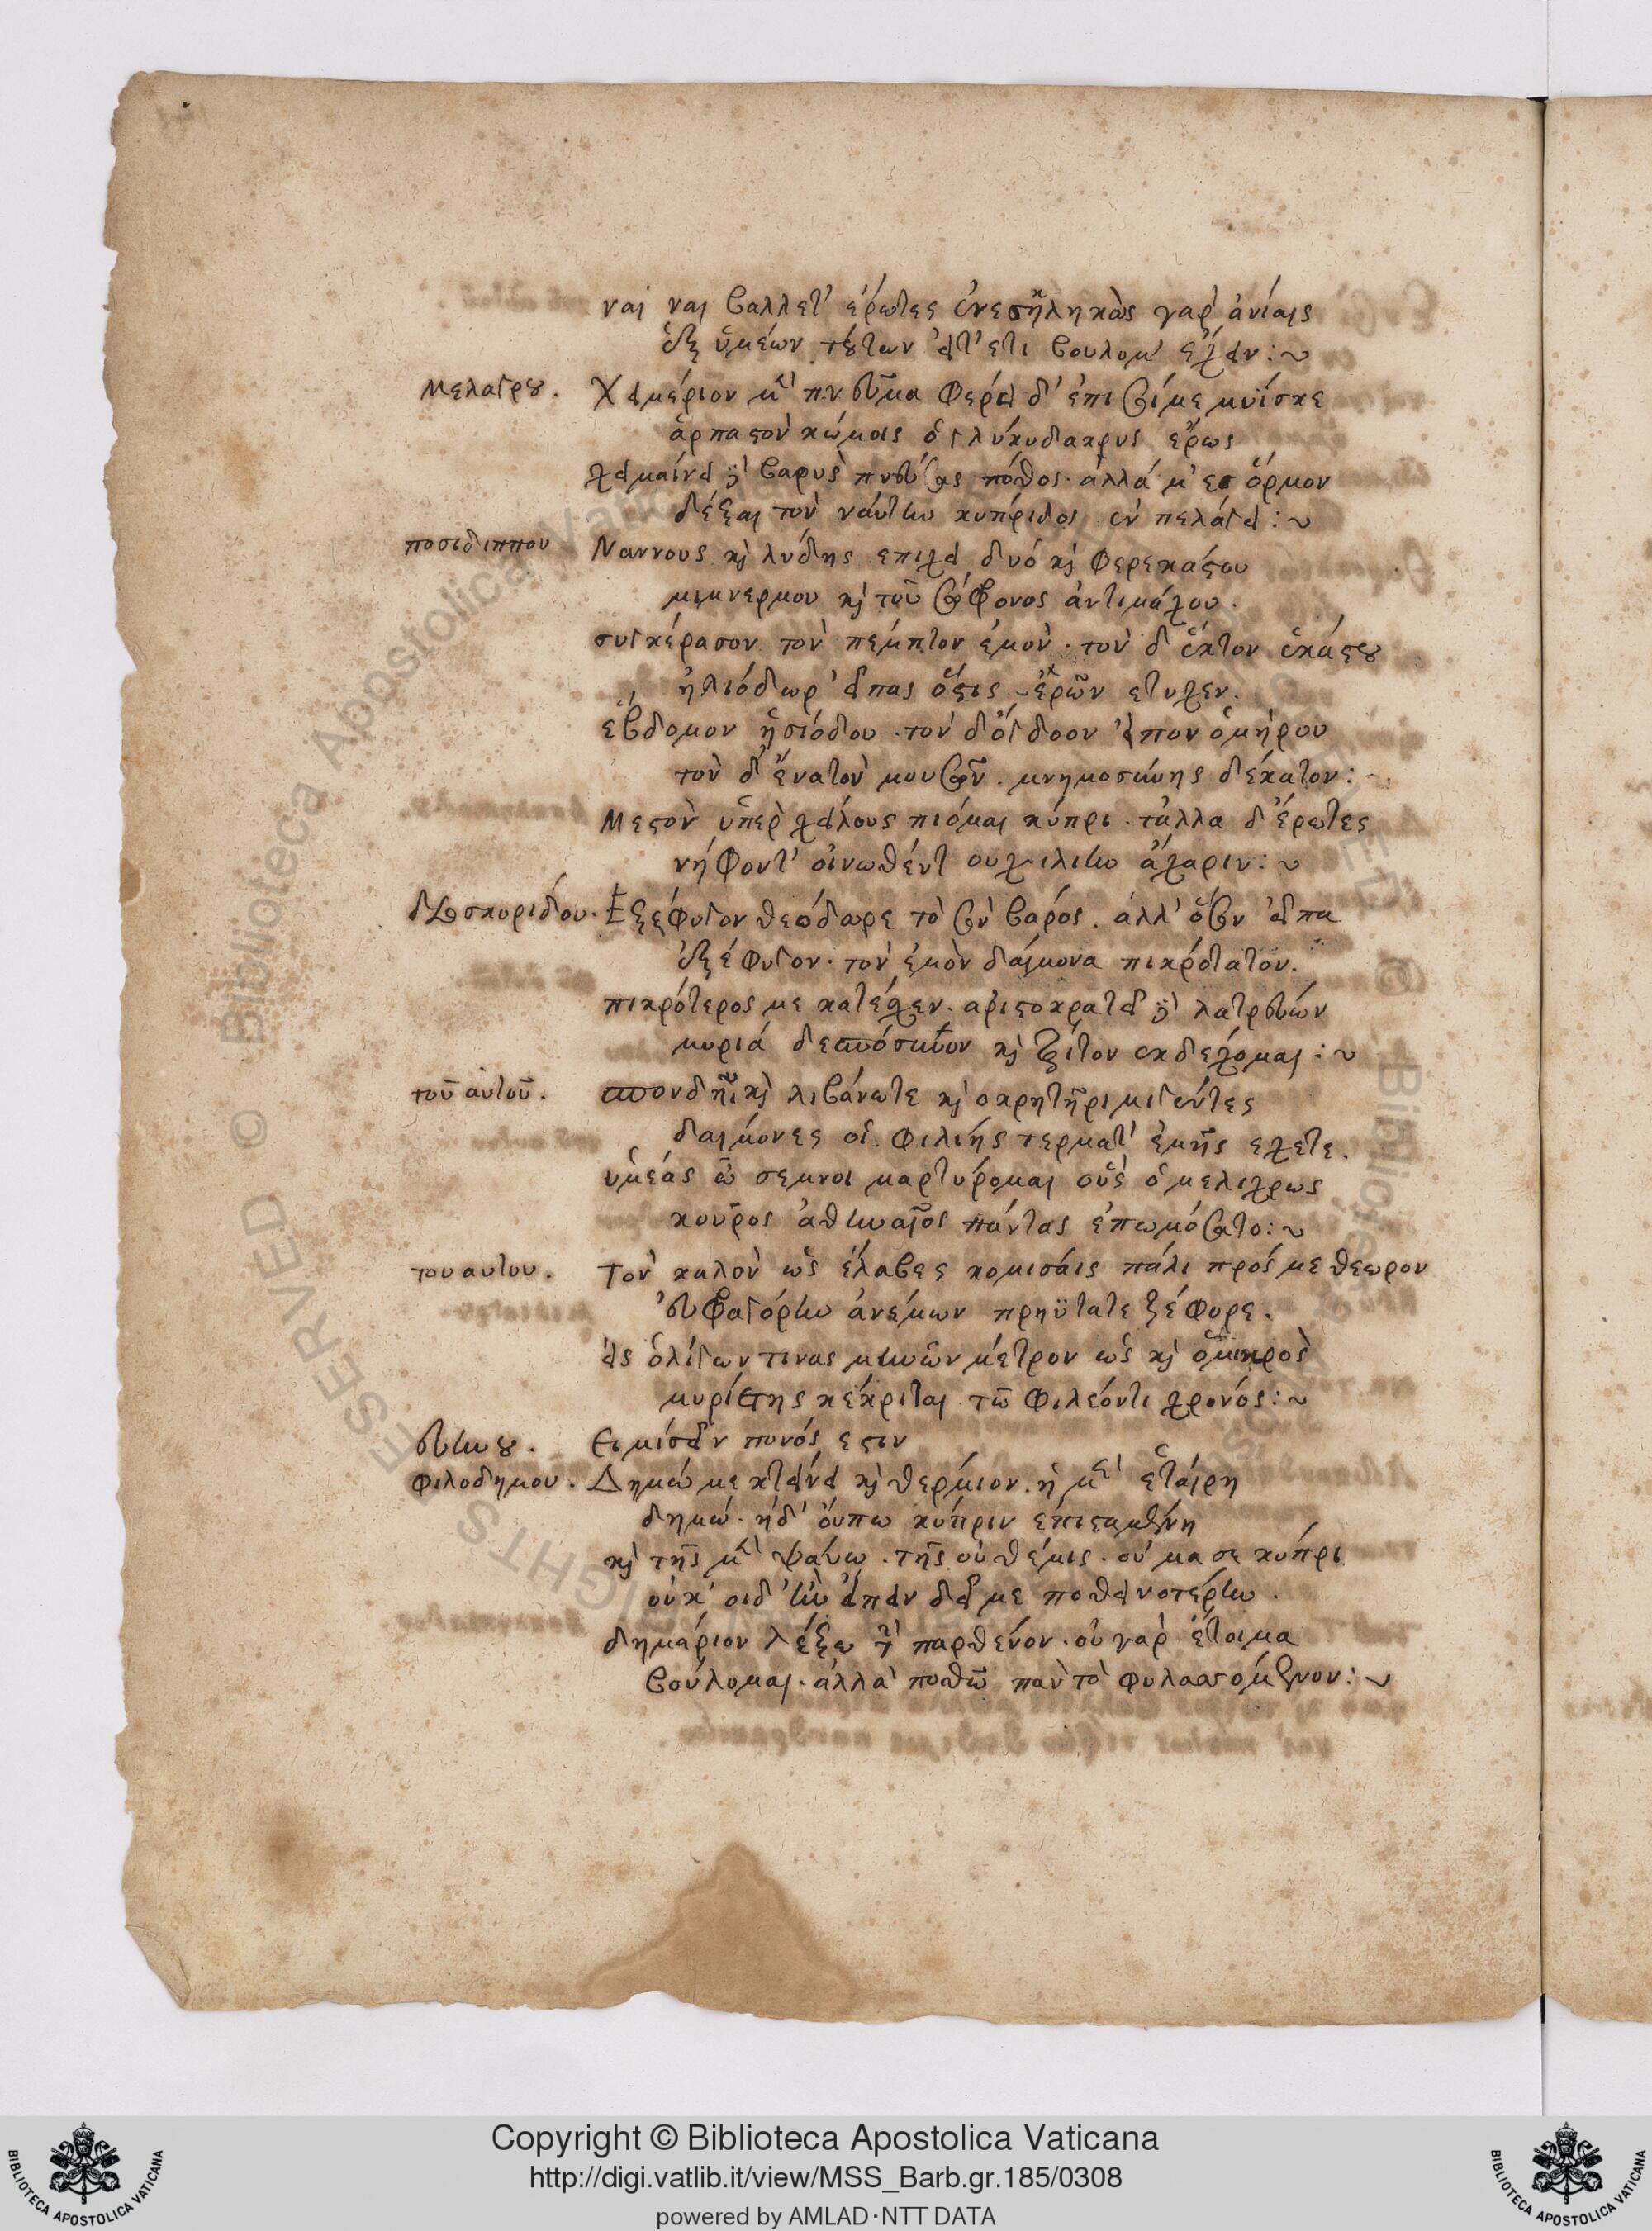 ναὶ ναὶ βάλλετ' ἔρωτες ἐνεστήληκας γὰρ ἀνίαις
ἐξ ὑμέων τούτων εἴτ' ἔτι βούλομ' ἔχειν:~
Μελεάγρου. Χειμέριον μὲν πνεῦμα φέρει δ' ἐπὶ σοί με μυΐσκε
ἁρπαστὸν κώμοις ὁ γλυκύδακρυς ἔρως
χειμαίνει δὲ βαρὺς πνεύσας πόθος· ἀλλά μ' ἐς ὅρμον
δέξαι τὸν ναύτην κύπριδος ἐν πελάγει:~
ποσιδιππου Ναννους καὶ λύδης επιχει δυό καὶ φερεκάστου
μιμνερμου καὶ τοῦ σώφρονος ἀντιμάχου.
συγκέρασον τὸν πέμπτον ἐμὸν· τὸν δ' ἕκτον ἑκάστου
ἡλιόδωρ' εἶπας ὅστις ἐρῶν ετυχεν.
ἕβδομον ἡσιόδου· τὸν δ' ὄγδοον εἶπον ὁμήρου
τὸν δ' ἔνατον μουσῶν. μνημοσύνης δέκατον:
Μεστὸν ὑπὲρ χείλους πιόμαι κύπρι· τἄλλα δ' ἔρωτες
νήφοντ' οἰνωθέντ ουχι λιην ἄχαριν:~
διοσκυρίδου. Ἐξέφυγον θεόδωρε τὸ σὸν βάρος. ἀλλ' ὅσον εἶπα
ἐξέφυγον· τὸν ἐμὸν δαίμονα πικρότατον.
πικρότερος με κατέσχεν. αριστοκράτει δὲ λατρεύων
μυριά δεσπόσυνον καὶ τρίτον εκδέχομαι:~
τοῦ αὐτοῦ. σπονδὴ καὶ λιβάνωτε καὶ ο κρητῆρι μιγέντες
δαίμονες οἳ φιλίης τερματ' ἐμῆς εχετε.
ὑμέας ὦ σεμνοι μαρτύρομαι οὓς ὁ μελίχρως
κοῦρος ἀθηναῖος πάντας ἐπωμόσατο:~
του αυτου. Τὸν καλὸν ὡς ἔλαβες κομίσαις πάλι πρός με θεωρον
εὐφραγόρην ἀνέμων πρηΰτατε ζέφυρε.
εἰς ὀλίγων τινας μηνῶν μέτρον ὡς καὶ ὁ μικρὸς
μυριέτης κέκριται τῶ φιλέοντι χρονός:~
εὐήνου. Ει μίσειν πονός εστιν
φιλοδημου. Δημώ με κτείνει καὶ θερμιον. ἡ μὲν ἑταίρη
δημώ· ἡδ' οὔπω κύπριν επισταμένη
καὶ τῆς μὲν ψαύω· τῆς οὐ θέμις· οὐ μα σε κύπρι
οὐκ οιδ' ἣν εἰπεῖν δεῖ με ποθεινοτέρην.
δημάριον λέξω τὴν παρθένον· οὐ γὰρ ἕτοιμα
βούλομαι· ἀλλὰ ποθῶ πᾶν τὸ φυλασσόμενον:~
Copyright © Biblioteca Apostolica Vaticana
http://digi.vatlib.it/view/MSS_Barb.gr.185/0308
powered by AMLAD·NTT DATA